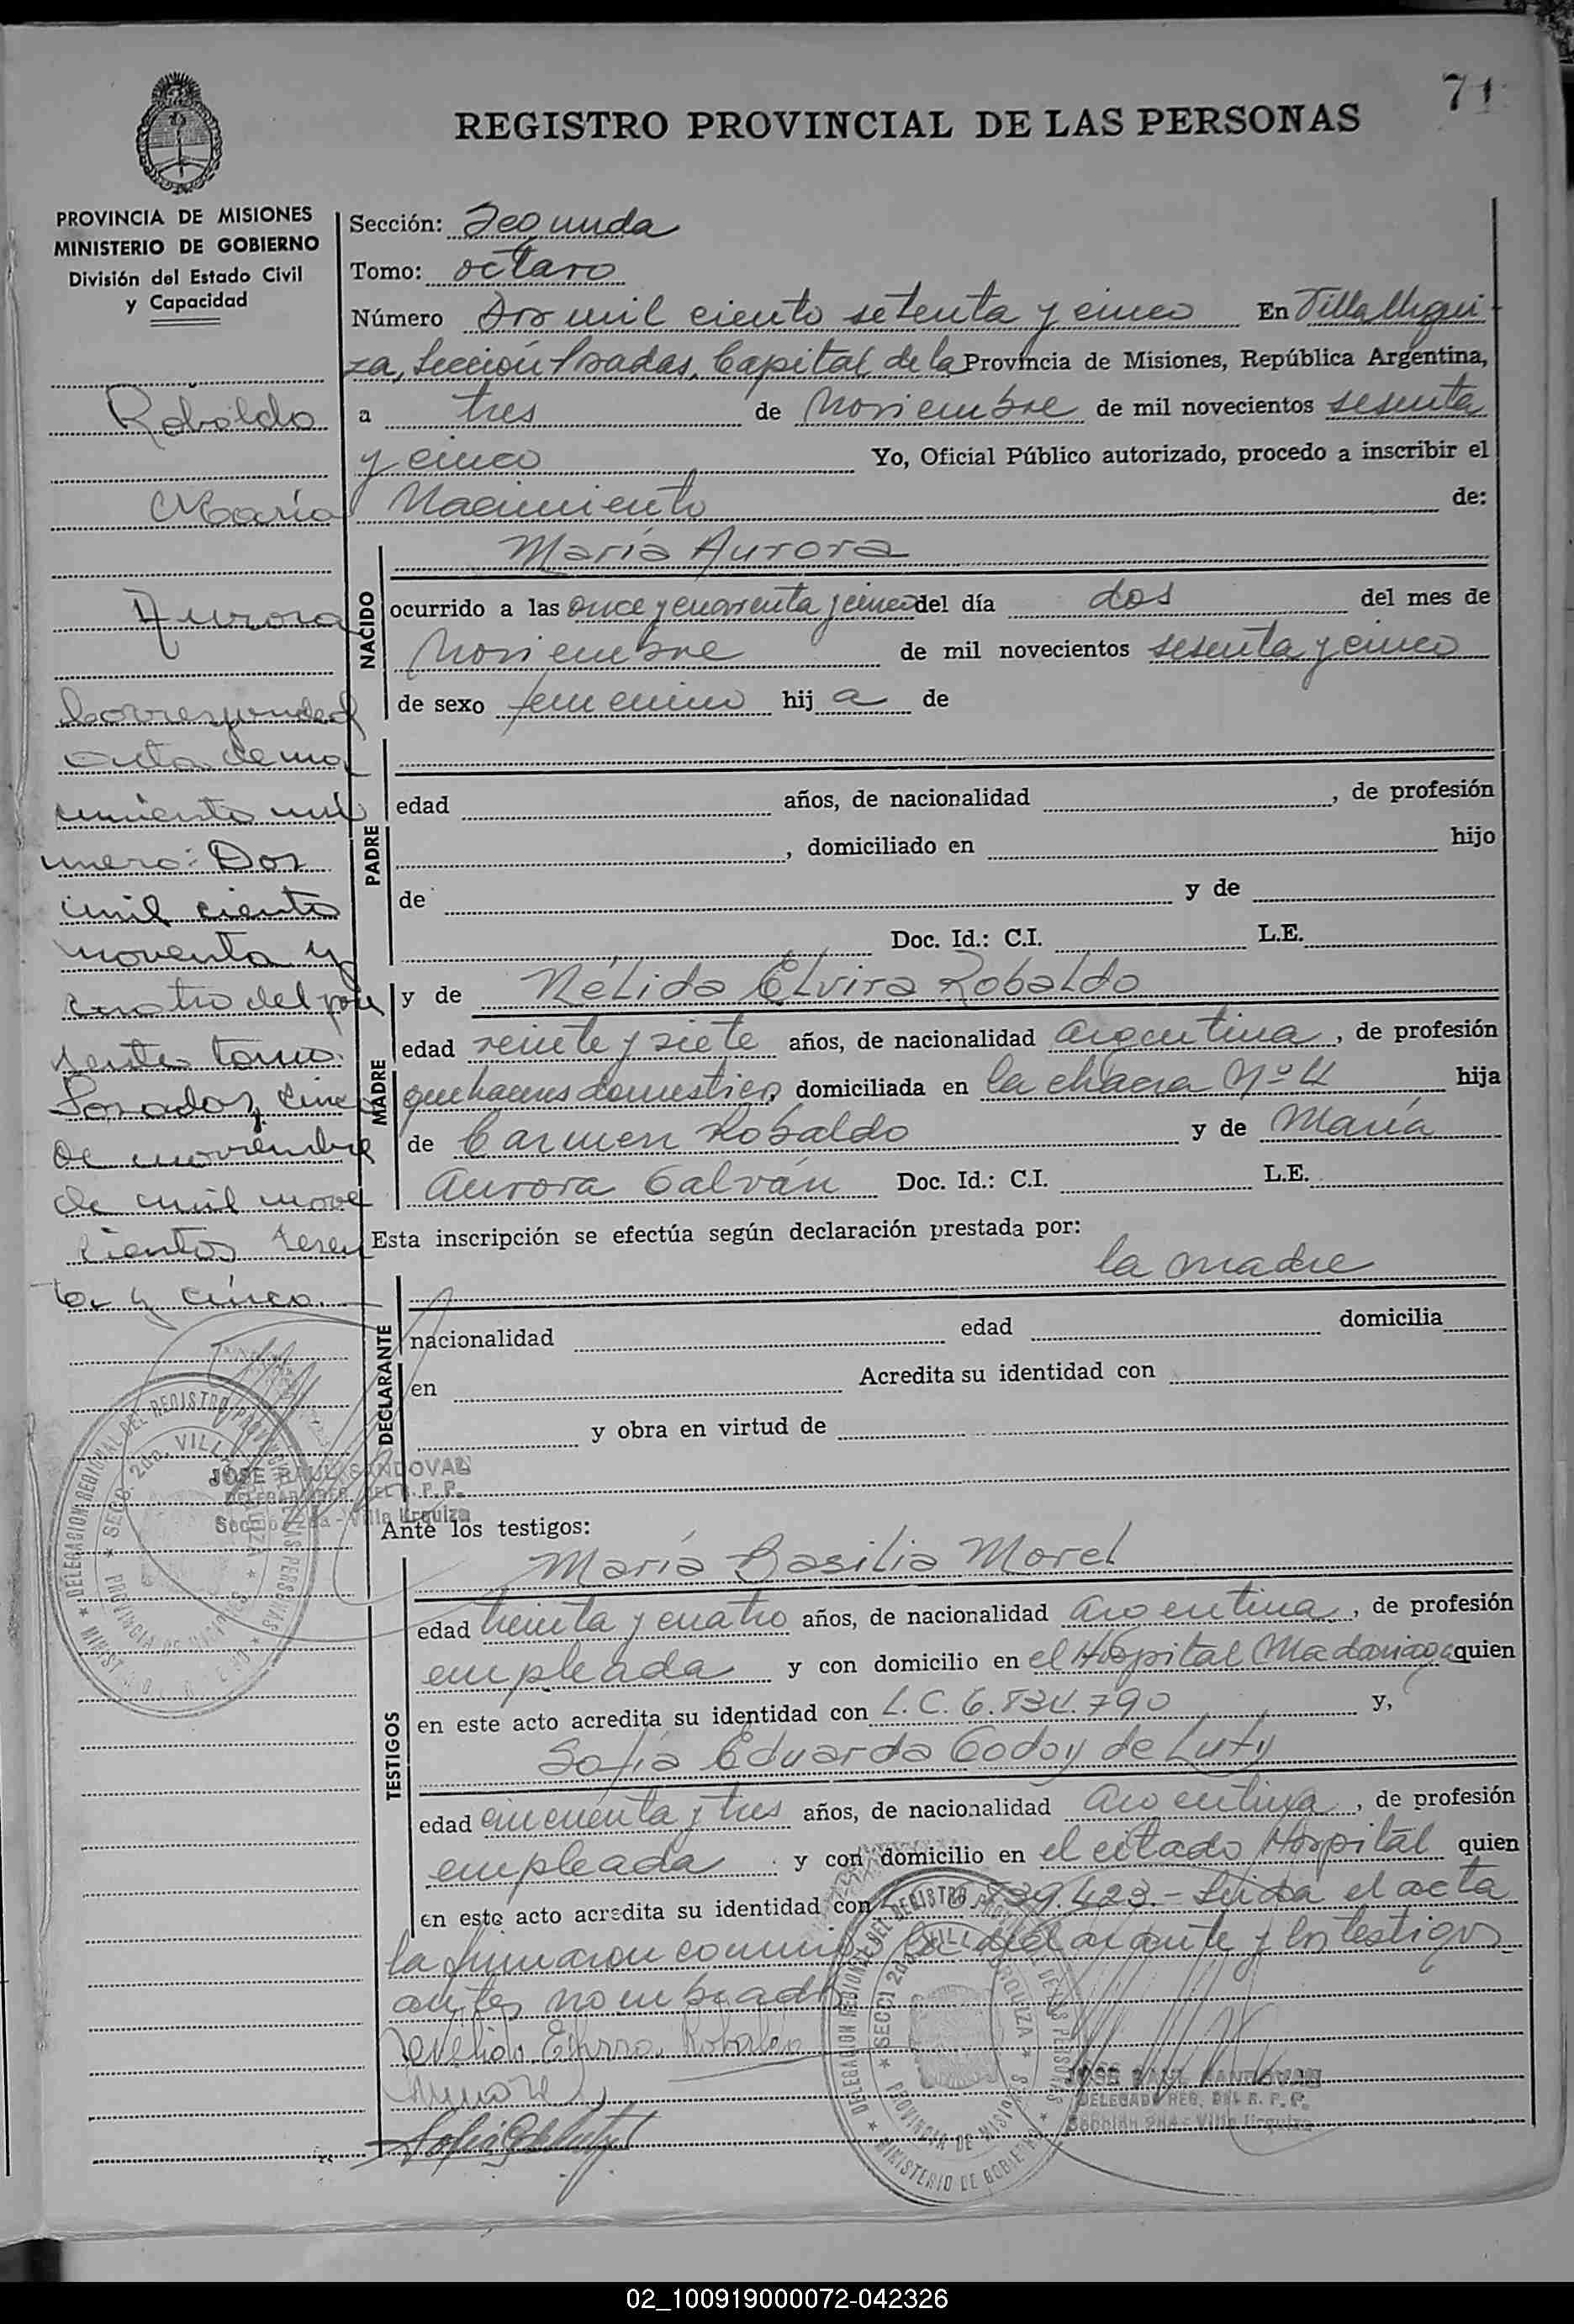 71
REGISTRO PROVINCIAL DE LAS PERSONAS
PROVINCIA DE MISIONES
MINISTERIO DE GOBIERNO
División del Estado Civil
y Capacidad
Robaldo
María
Aurora
Corresponde al
acta de na
cimiento nú
mero: Dos
mil ciento
noventa y
cuatro del pre
sente tomo.
Posadas, cinco
de noviembre
de mil nove
cientos sesen
ta y cinco.
Sección: Segunda
Tomo: octavo
Número Dos mil ciento setenta y cinco En Villa Urqui
za, Sección Posadas, Capital de la Provincia de Misiones, República Argentina,
a tres de Noviembre de mil novecientos sesenta
y cinco Yo, Oficial Público autorizado, procedo a inscribir el
Nacimiento de:
NACIDO
María Aurora
ocurrido a las once y cuarenta y cinco del día dos del mes de
Noviembre de mil novecientos sesenta y cinco
de sexo femenino hij a de
PADRE
edad años, de nacionalidad , de profesión
, domiciliado en hijo
de y de
Doc. Id.: C.I. L.E.
MADRE
y de Nélida Elvira Robaldo
edad veinte y siete años, de nacionalidad argentina, de profesión
quehaceres domesticos domiciliada en la chacra Nº 4 hija
de Carmen Robaldo y de María
Aurora Galván Doc. Id.: C.I. L.E.
Esta inscripción se efectúa según declaración prestada por:
la madre
DECLARANTE
nacionalidad edad domicilia
en Acredita su identidad con
y obra en virtud de
JOSE RAUL SANDOVAL
DELEGADO REG. DEL R. P. P.
Sección 2da - Villa Urquiza
Ante los testigos:
TESTIGOS
María Basilia Morel
edad treinta y cuatro años, de nacionalidad argentina, de profesión
empleada y con domicilio en el Hospital Madariaga quien
en este acto acredita su identidad con L.C. 6.834.790 y,
Sofía Eduarda Godoy de Luty
edad cincuenta y tres años, de nacionalidad argentina, de profesión
empleada y con domicilio en el citado Hospital quien
en este acto acredita su identidad con 839.423.- Leida el acta
la firmaron conmigo la declarante y los testigos
antes nombrados
Nelida Elvira Robaldo
DELEGACION REGIONAL DEL REGISTRO PROVINCIAL DE LAS PERSONAS
SECC. 2da. VILLA URQUIZA
PROVINCIA DE MISIONES
MINISTERIO DE GOBIERNO
JOSE RAUL SANDOVAL
DELEGADO REG. DEL R. P. P.
Sección 2da - Villa Urquiza
02_100919000072-042326